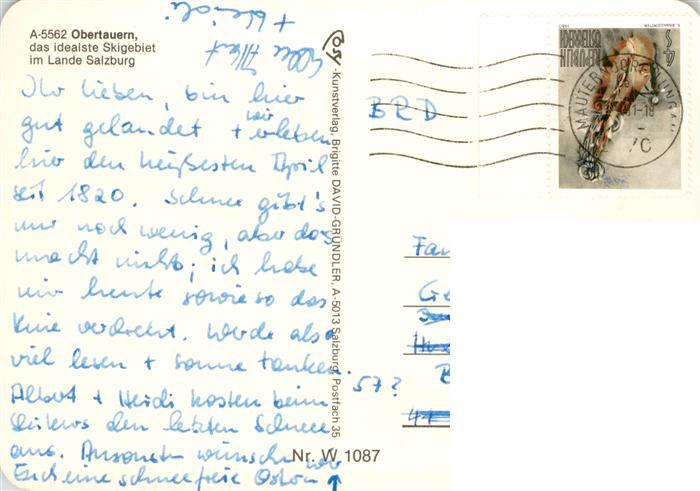 A-5562 Obertauern,
das idealste Skigebiet
im Lande Salzburg
Ihr Lieben, bin hier
gut gelandet + wir erleben
hier den heißesten April
seit 1820. Schnee gibt's
nur noch wenig, aber das
macht nichts; ich habe
mir heute sowieso das
Knie verdreht. Werde also
viel lesen + Sonne tanken.
Albert + Heidi kosten beim
den letzten Schnee
aus. Ansonsten wünschen wir
Euch eine schneefreie Ostern
+ Heidi
Cosy-Kunstverlag, Brigitte DAVID-GRÜNDLER, A-5013 Salzburg, Postfach 35
Nr. W 1087
BRD
REPUBLIK
ÖSTERREICH
S 4
Fam
57?